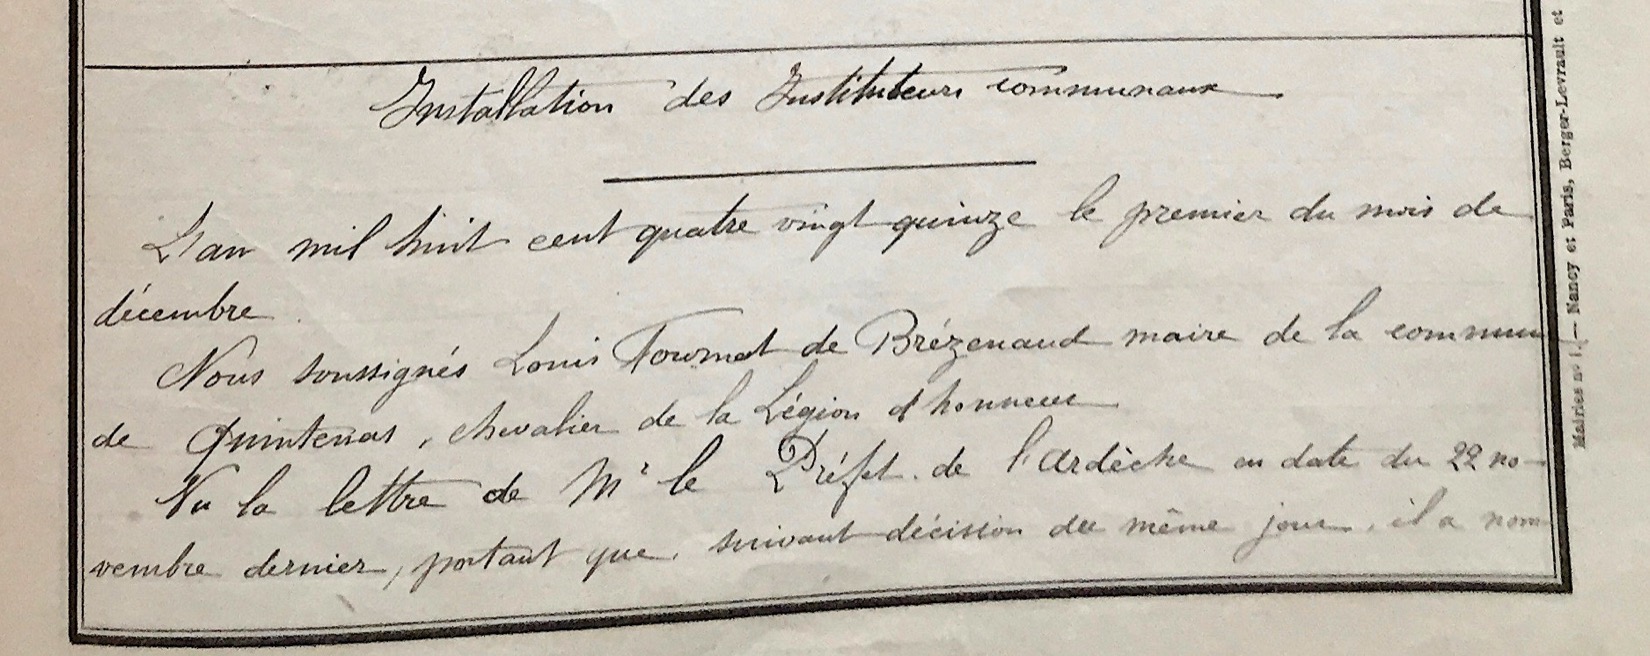 Installation des Instituteurs communaux
L'an mil huit cent quatre vingt quinze le premier du mois de
décembre.
Nous soussignés Louis Fournat de Brézenaud maire de la commun
de Quintenas, chevalier de la Légion d'honneur
Vu la lettre de Mr le Préfet de l'Ardèche en date du 22 no-
vembre dernier, portant que, suivant décision du même jour, il a nom
Mairies no 1. — Nancy et Paris, Berger-Levrault et